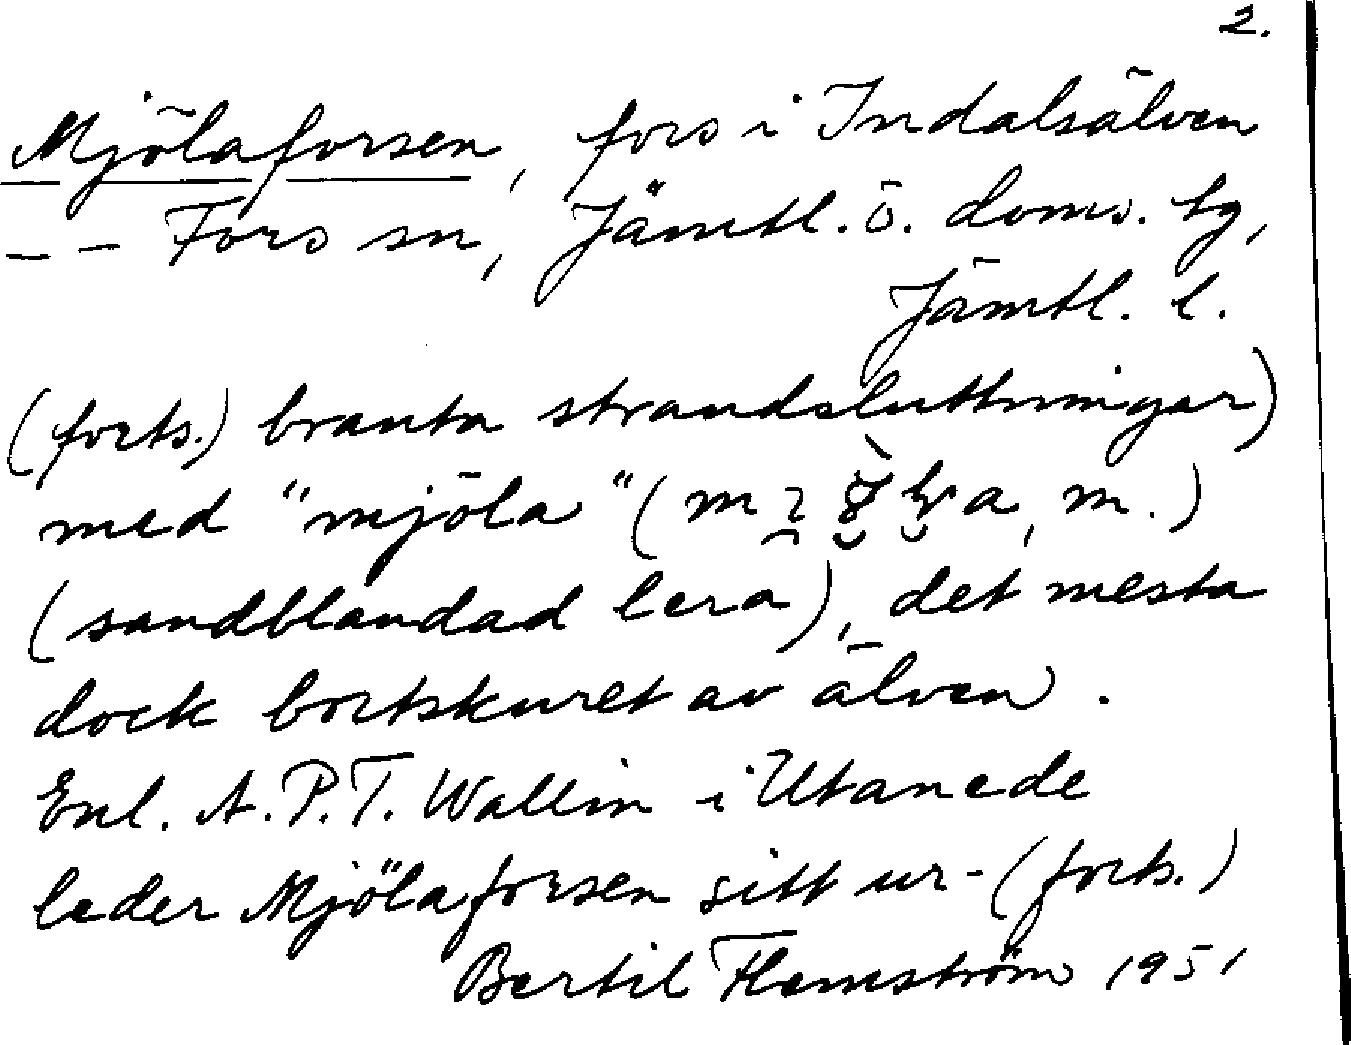 2.
Mjölaforsen, fors i Indalsälven
– – Fors sn, Jämtl. ö. doms. tg,
Jämtl. l.
(forts.) branta strandsluttningar)
med "mjöla" (m a, m.)
(sandblandad lera), det mesta
dock bortskuret av älven.
Enl. A.P.T. Wallin i Utanede
leder Mjölaforsen sitt ur- (forts.)
Bertil Flemström 1951